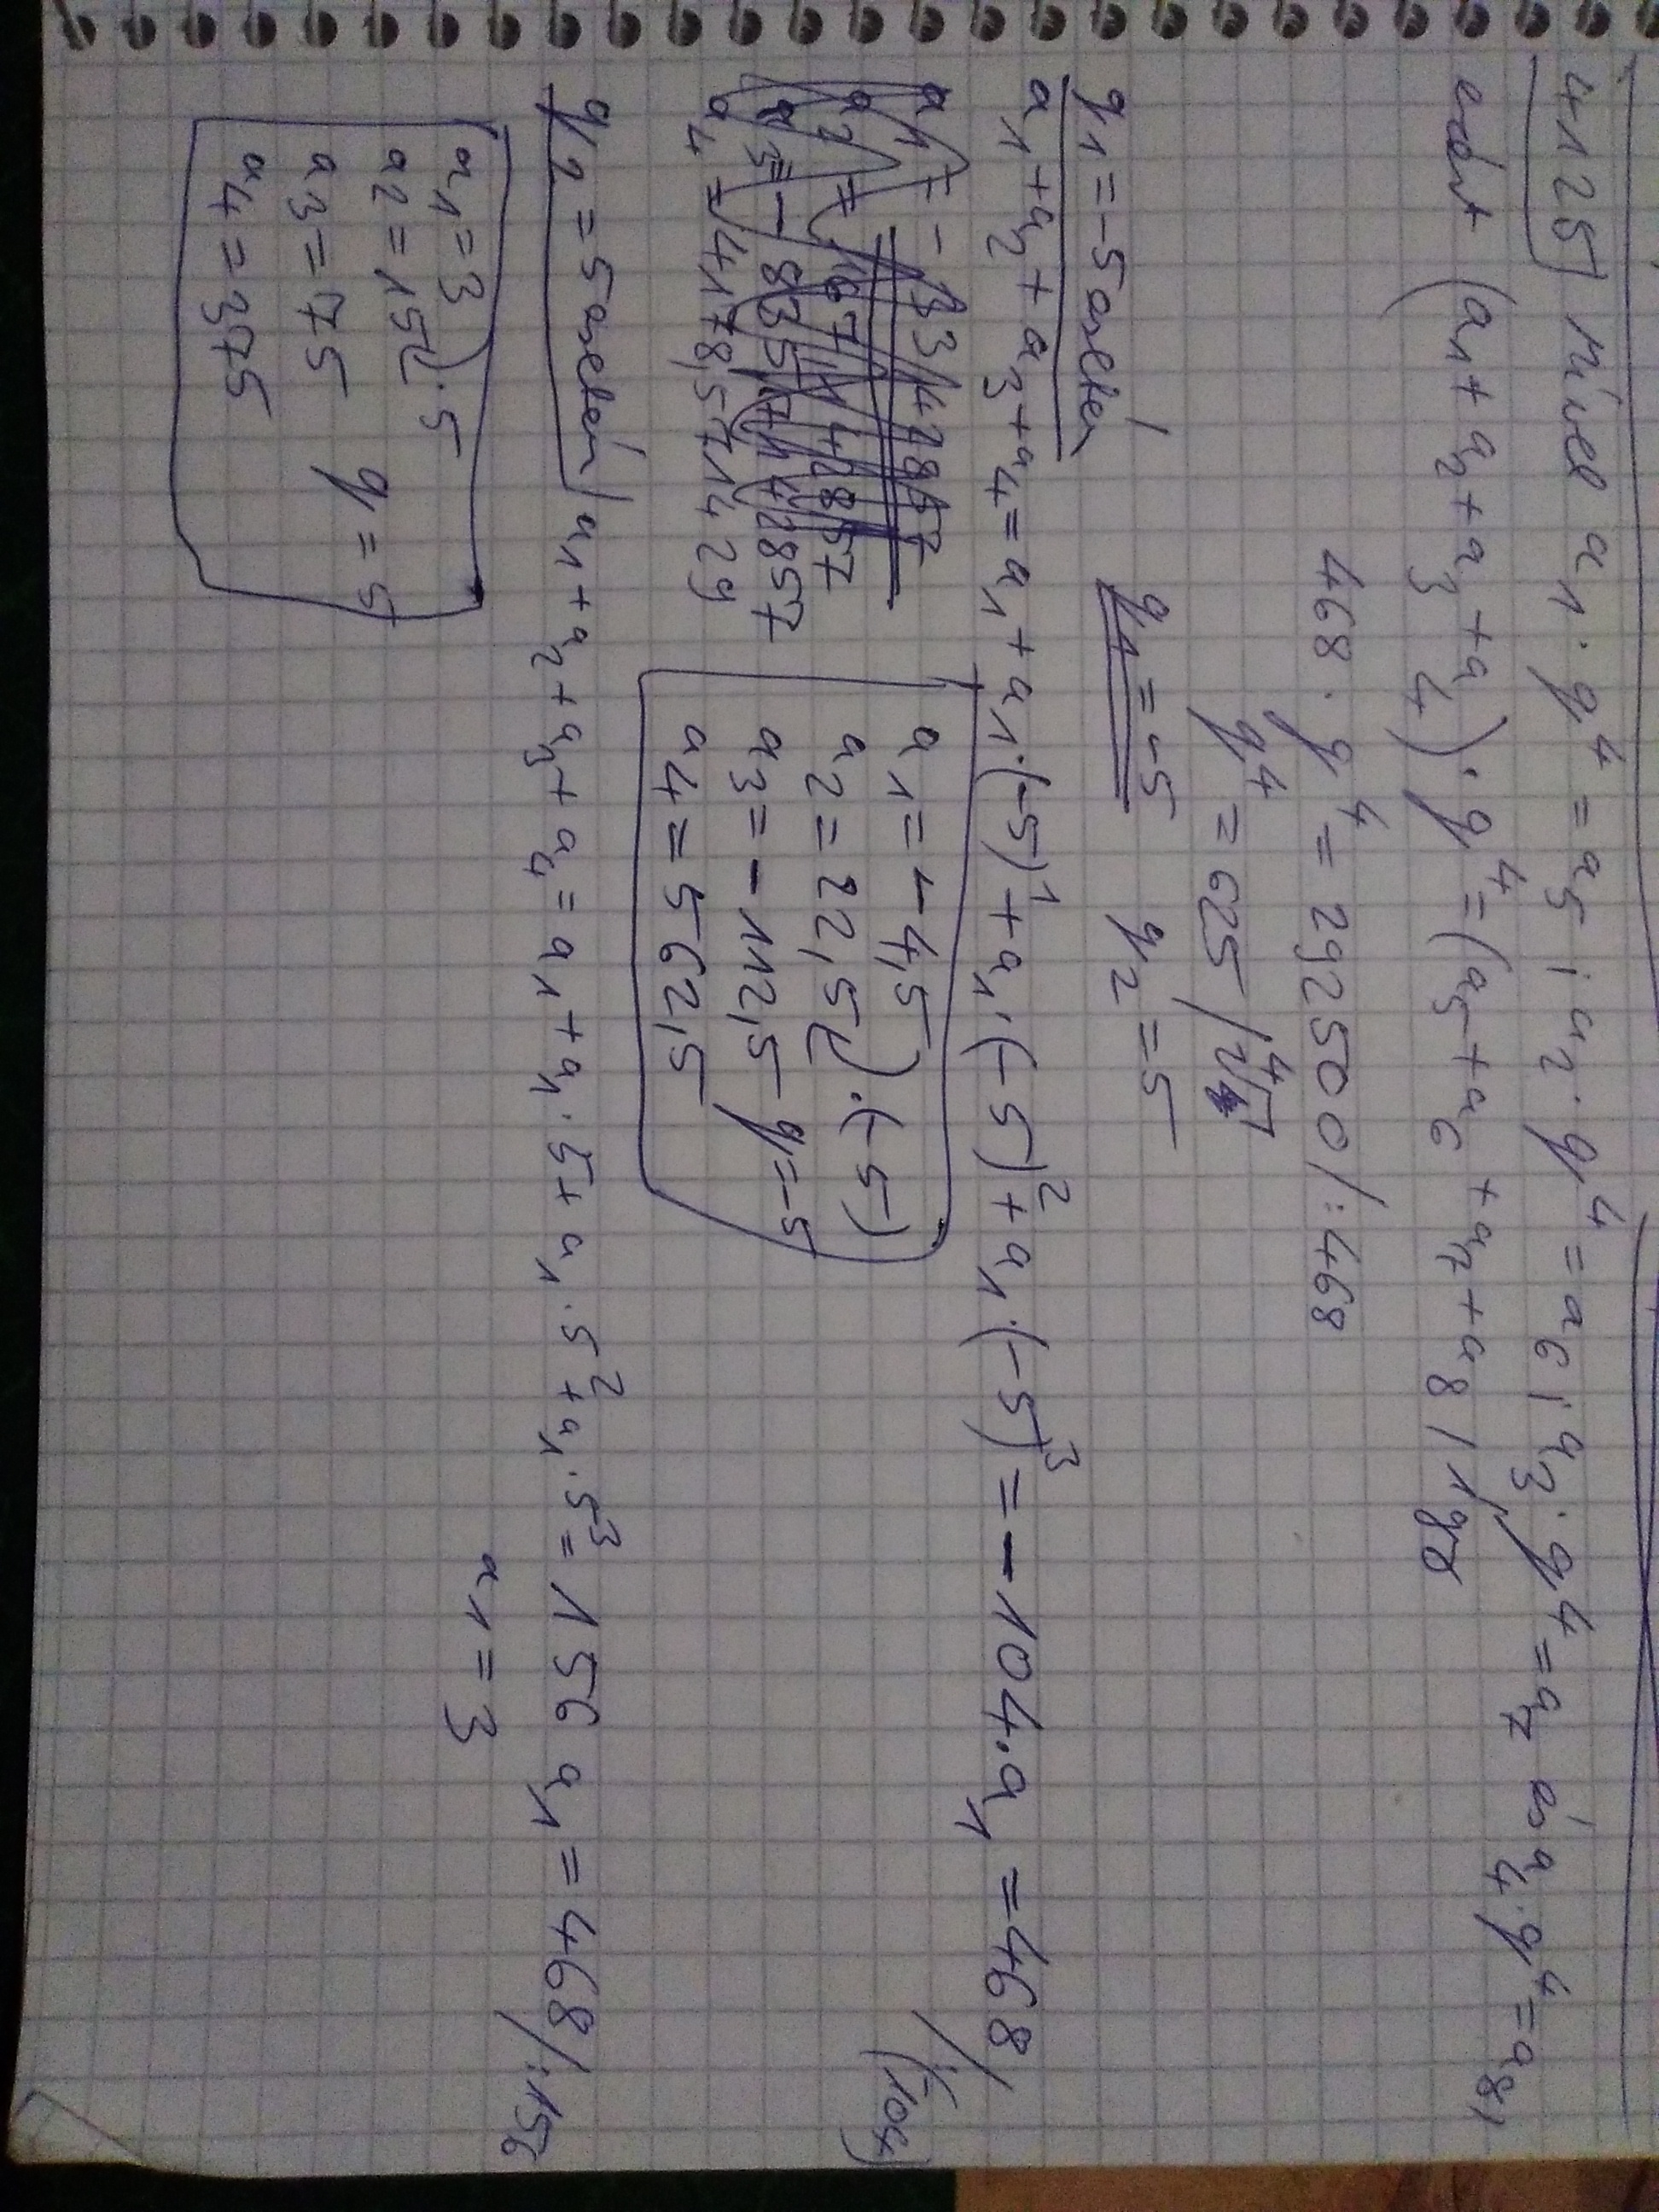 4125) Mivel a₁·q⁴ = a₅ ; a₂·q⁴ = a₆ ; a₃·q⁴ = a₇ és a₄·q⁴ = a₈,
ezért (a₁+a₂+a₃+a₄)·q⁴ = (a₅+a₆+a₇+a₈ /
468·q⁴ = 292500 /:468
q⁴ = 625 / ⁴√
q₁ = -5 q₂ = 5
q₁ = -5 esetén
a₁+a₂+a₃+a₄ = a₁+a₁·(-5)¹+a₁·(-5)²+a₁·(-5)³ = -104·a₁ = 468 /:(-104)
a₁ = -4,5
a₂ = 22,5 )·(-5)
a₃ = -112,5 q = -5
a₄ = 562,5
a₄ = 4178,571429
q₂ = 5 esetén / a₁+a₂+a₃+a₄ = a₁+a₁·5+a₁·5²+a₁·5³ = 156 a₁ = 468 /:156
a₁ = 3
a₁ = 3
a₂ = 15 )·5
a₃ = 75 q = 5
a₄ = 375